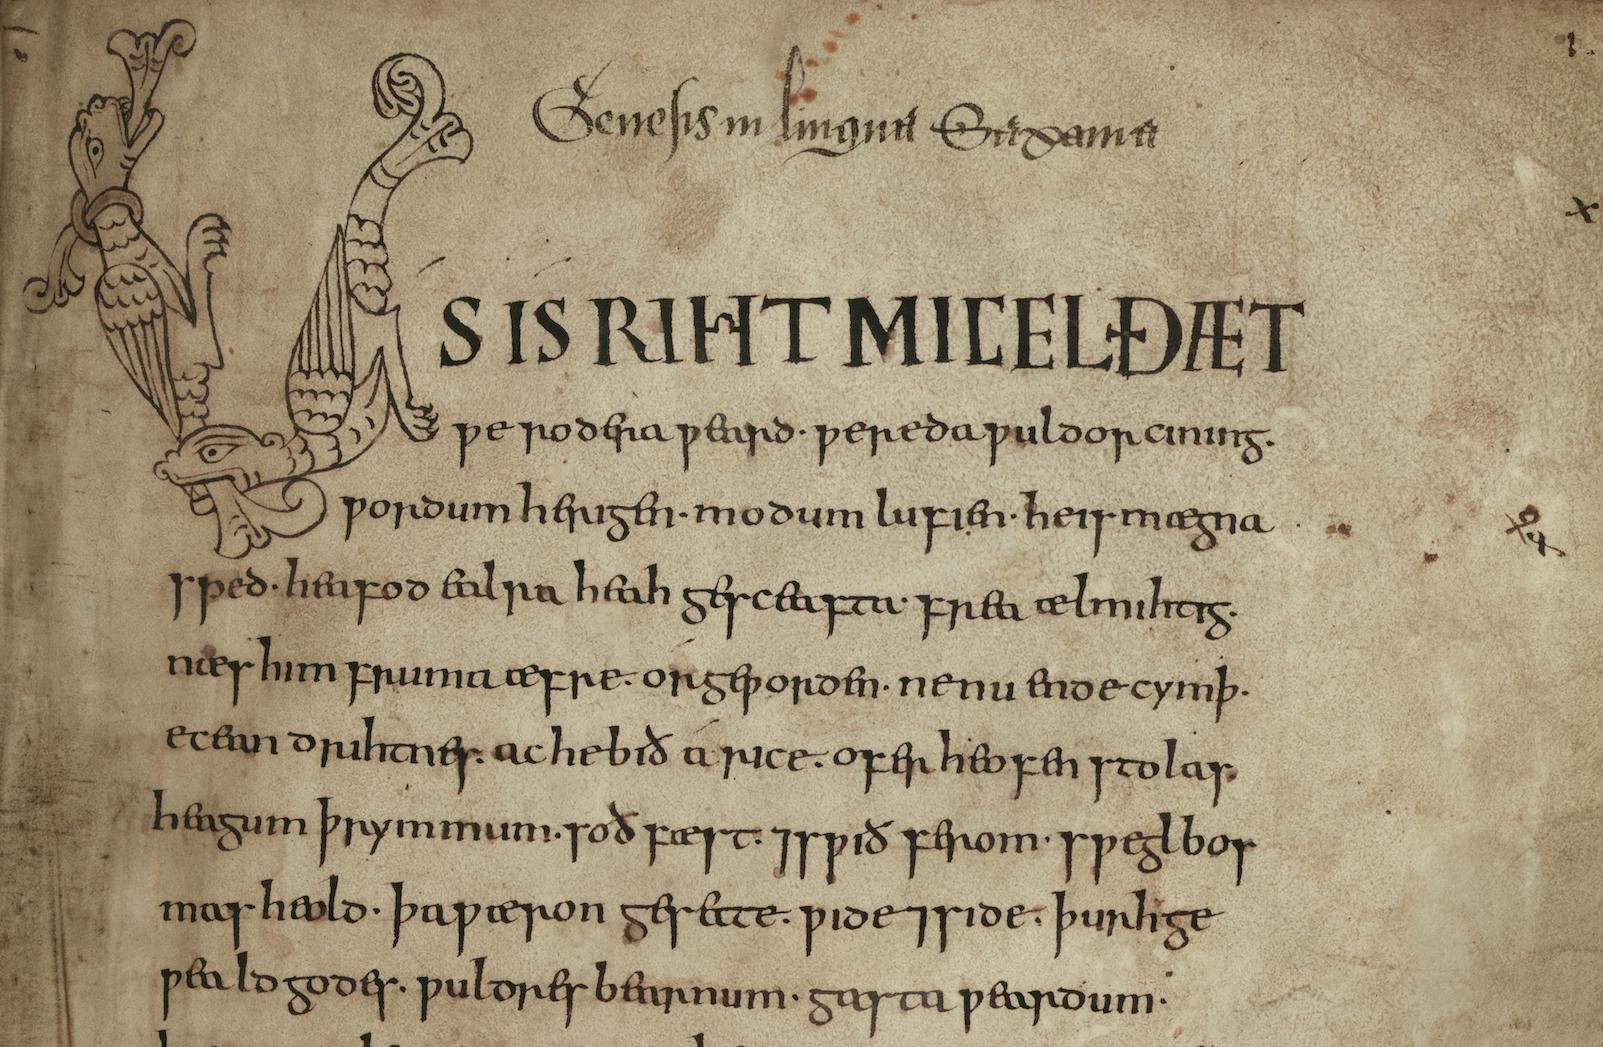 Genesis in lingua Saxania
1.
x
US IS RIHT MICEL ÐÆT
ƿe rodera ƿeard. ƿereda ƿuldor cining.
ƿordum herigen. modum lufien. he is mægna
sped. heafod ealra heah gesceafta. frea ælmihtig.
næs him fruma æfre. or geƿorden. ne nu ende cymþ.
ecean drihtnes. ac he bið á rice. ofer heofen stolas.
heagum þrymmum. soð fæst. ⁊ sƿið ferom. sƿegl bos
mas heold. þa ƿæron gesette. ƿide ⁊ side. þurh ge
ƿeald godes. ƿuldres bearnum. gasta ƿeardum.